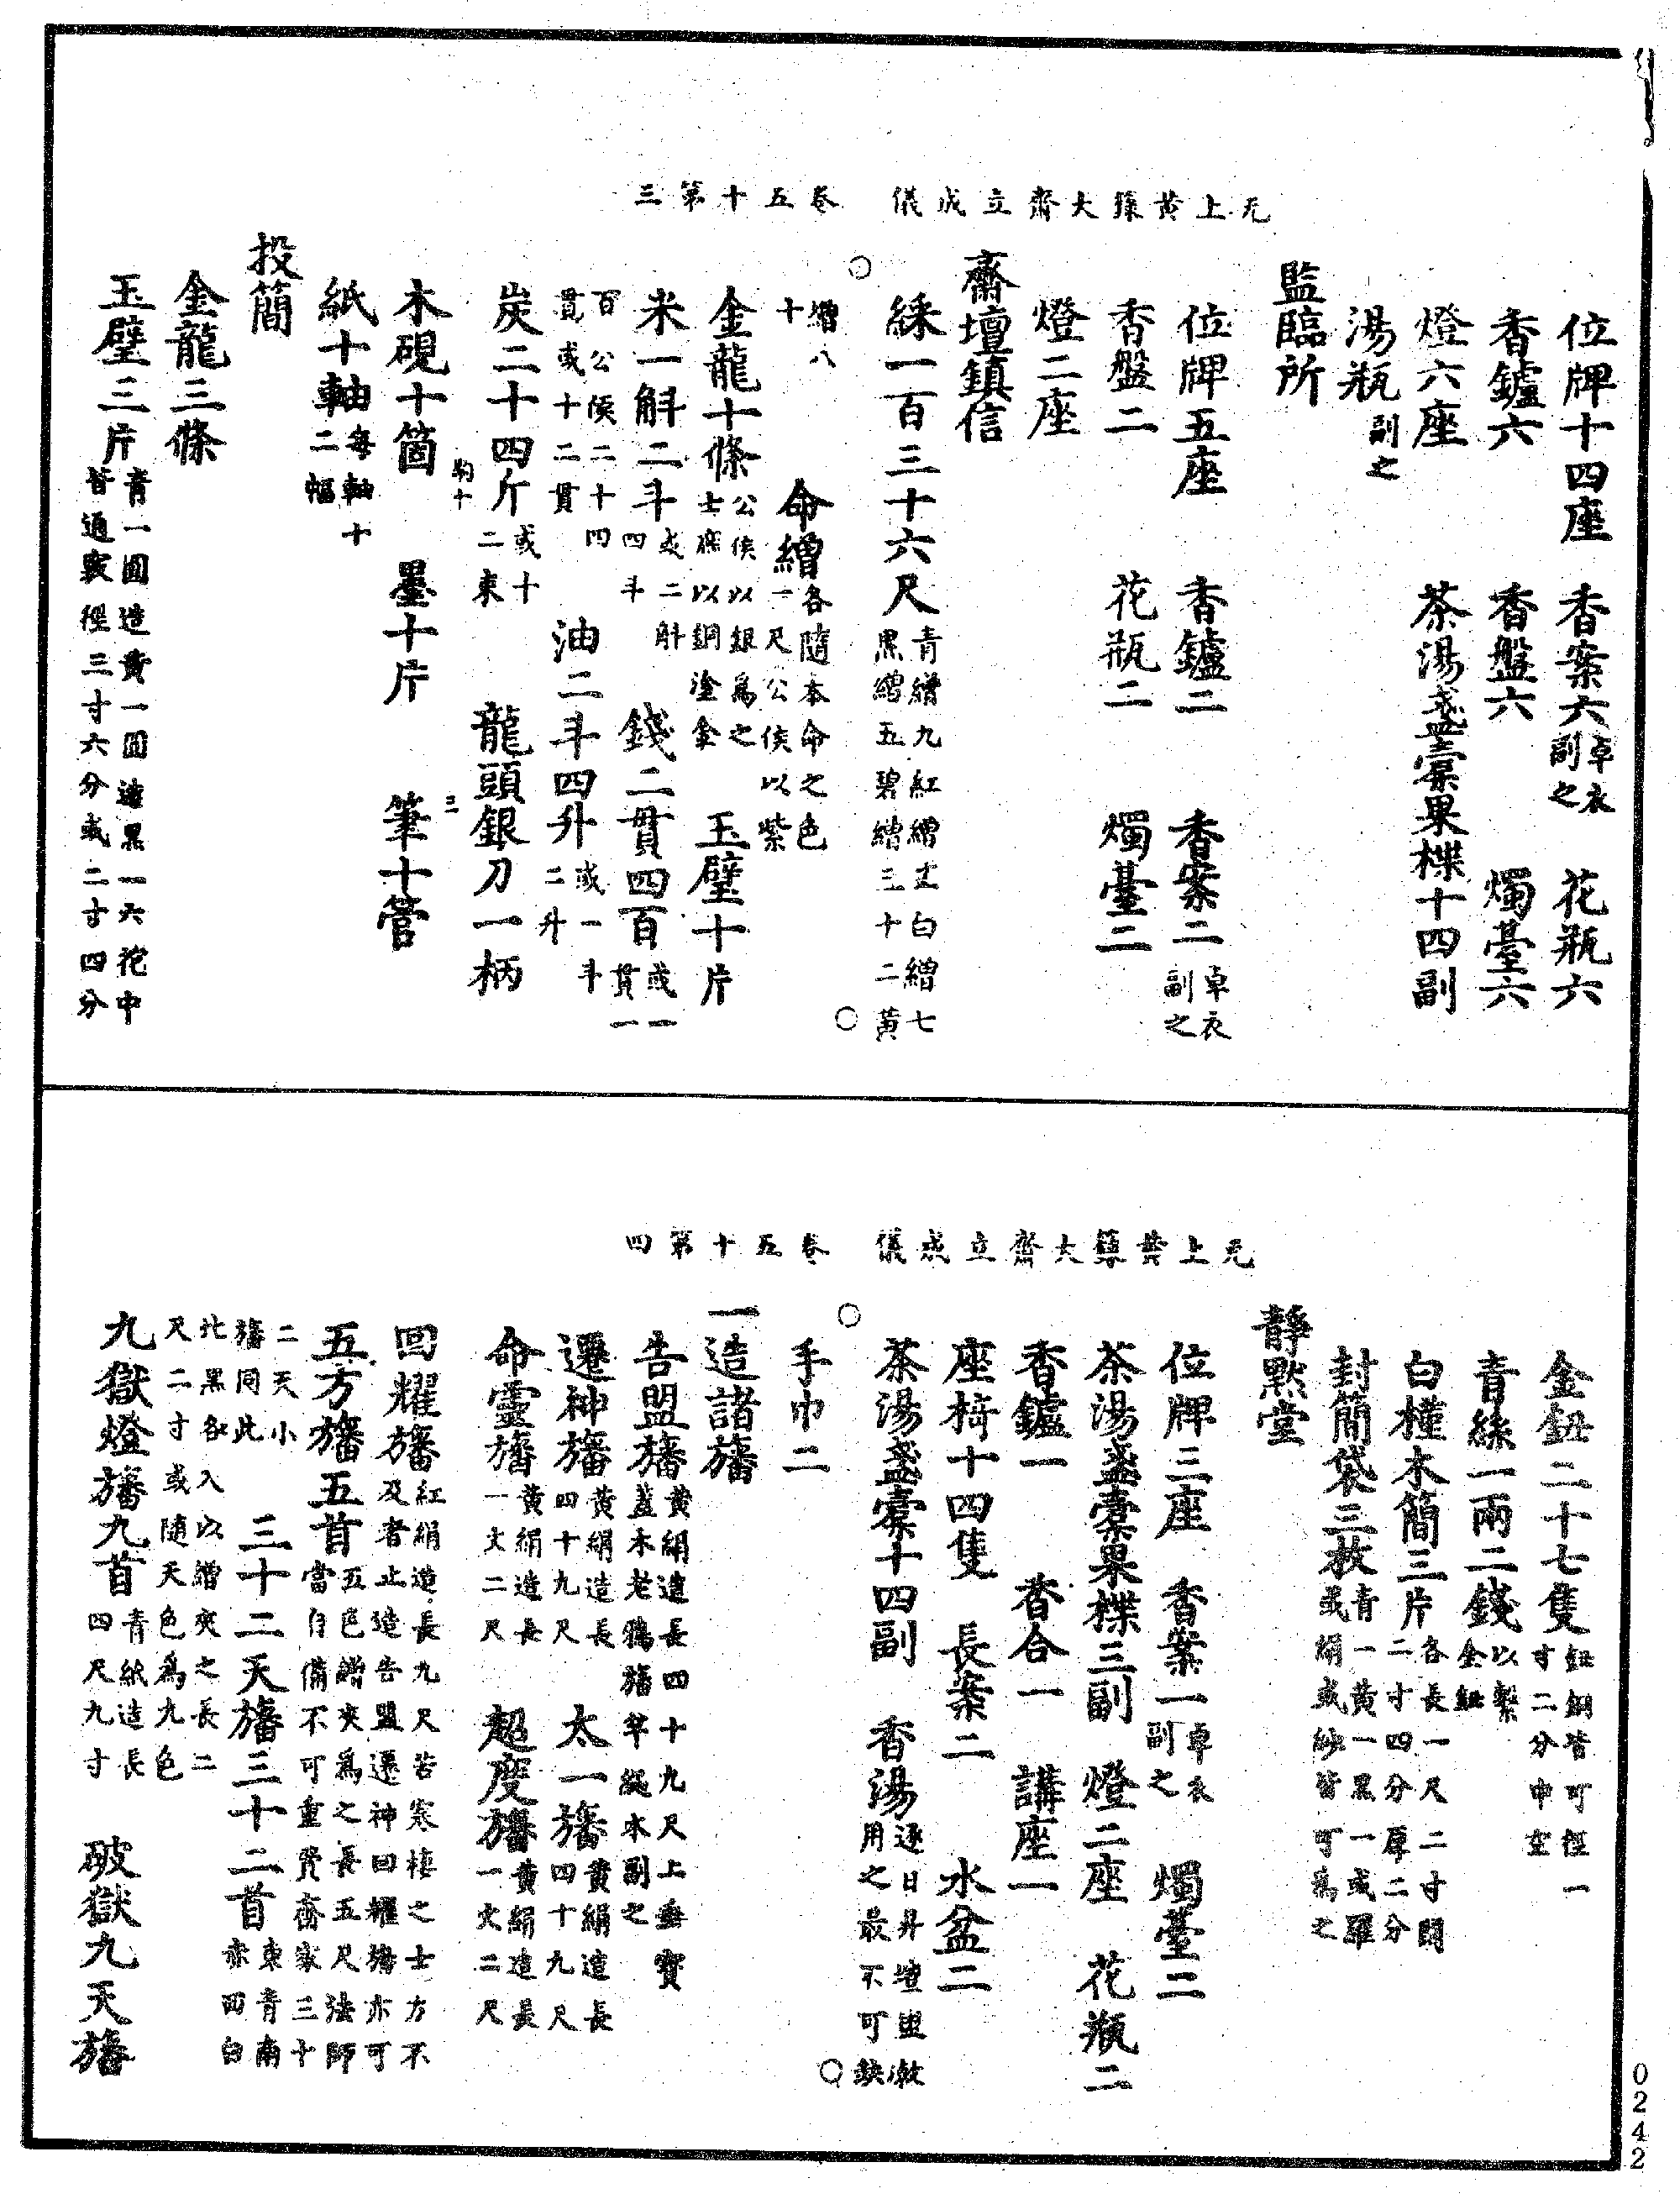 无上黃籙大齋立成儀　卷五十第三
位牌十四座　香案六卓衣副之　花瓶六
香鑪六　香盤六　燭臺六
燈六座　茶湯盞橐果楪十四副
湯瓶副之
監臨所
位牌五座　香鑪二　香案二卓衣副之
香盤二　花瓶二　燭臺二
燈二座
齋壇鎮信
綵一百三十六尺青繒九紅繒丈白繒七黑繒五碧繒三十二黃
繒八十　命繒各隨本命之色一尺公侯以紫
金龍十條公侯以銀爲之士庶以銅塗金　玉璧十片
米一斛二斗或二斛四斗　錢二貫四百或一貫一
百公侯二十四貫或十二貫　油二斗四升或一斗二升
炭二十四斤或十二束　龍頭銀刀一柄
木硯十箇　墨十片　筆十管
紙十軸每軸十二幅
投簡
金龍三條
玉璧三片青一圓造黃一圓造黑一六花中皆通竅徑三寸六分或二寸四分
无上黃籙大齋立成儀　卷五十第四
金鈕二十七隻鈕銅皆可徑一寸二分中空
青絲一兩二錢以繫金鈕
白槿木簡三片各長一尺二寸闊二寸四分厚二分
封簡袋三枚青一黃一黑一或羅或絹或紗皆可爲之
靜默堂
位牌三座　香案一卓衣副之　燭臺二
茶湯盞橐果楪三副　燈二座　花瓶二
香鑪一　香合一　講座一
座椅十四隻　長案二　水盆二
茶湯盞橐十四副　香湯逐日昇壇盥漱用之最不可缺
手巾二
一造諸旛
告盟旛黃絹造長四十九尺上垂寶蓋木老鴉旛竿繩木副之
遷神旛黃絹造長四十九尺　太一旛黃絹造長四十九尺
命靈旛黃絹造長一丈二尺　超度旛黃絹造長一丈二尺
回耀旛紅絹造長九尺若寒棲之士方不及者止造告盟遷神回耀旛亦可
五方旛五首五色繒夾爲之長五尺法師當自備不可重費齋家三十
二天小旛同此　三十二天旛三十二首東青南赤西白
北黑各入以繒夾之長二尺二寸或隨天色爲九色
九獄燈旛九首青紙造長四尺九寸　破獄九天旛
0242